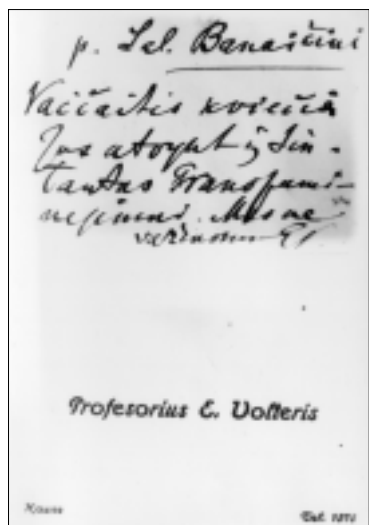 p. Sal. Banaičiui
Vaičaitis kviečia
Jus atvykt į Šin-
tautas
Mes ne
Profesorius E. Volteris
Kaunas
Tel. 1371